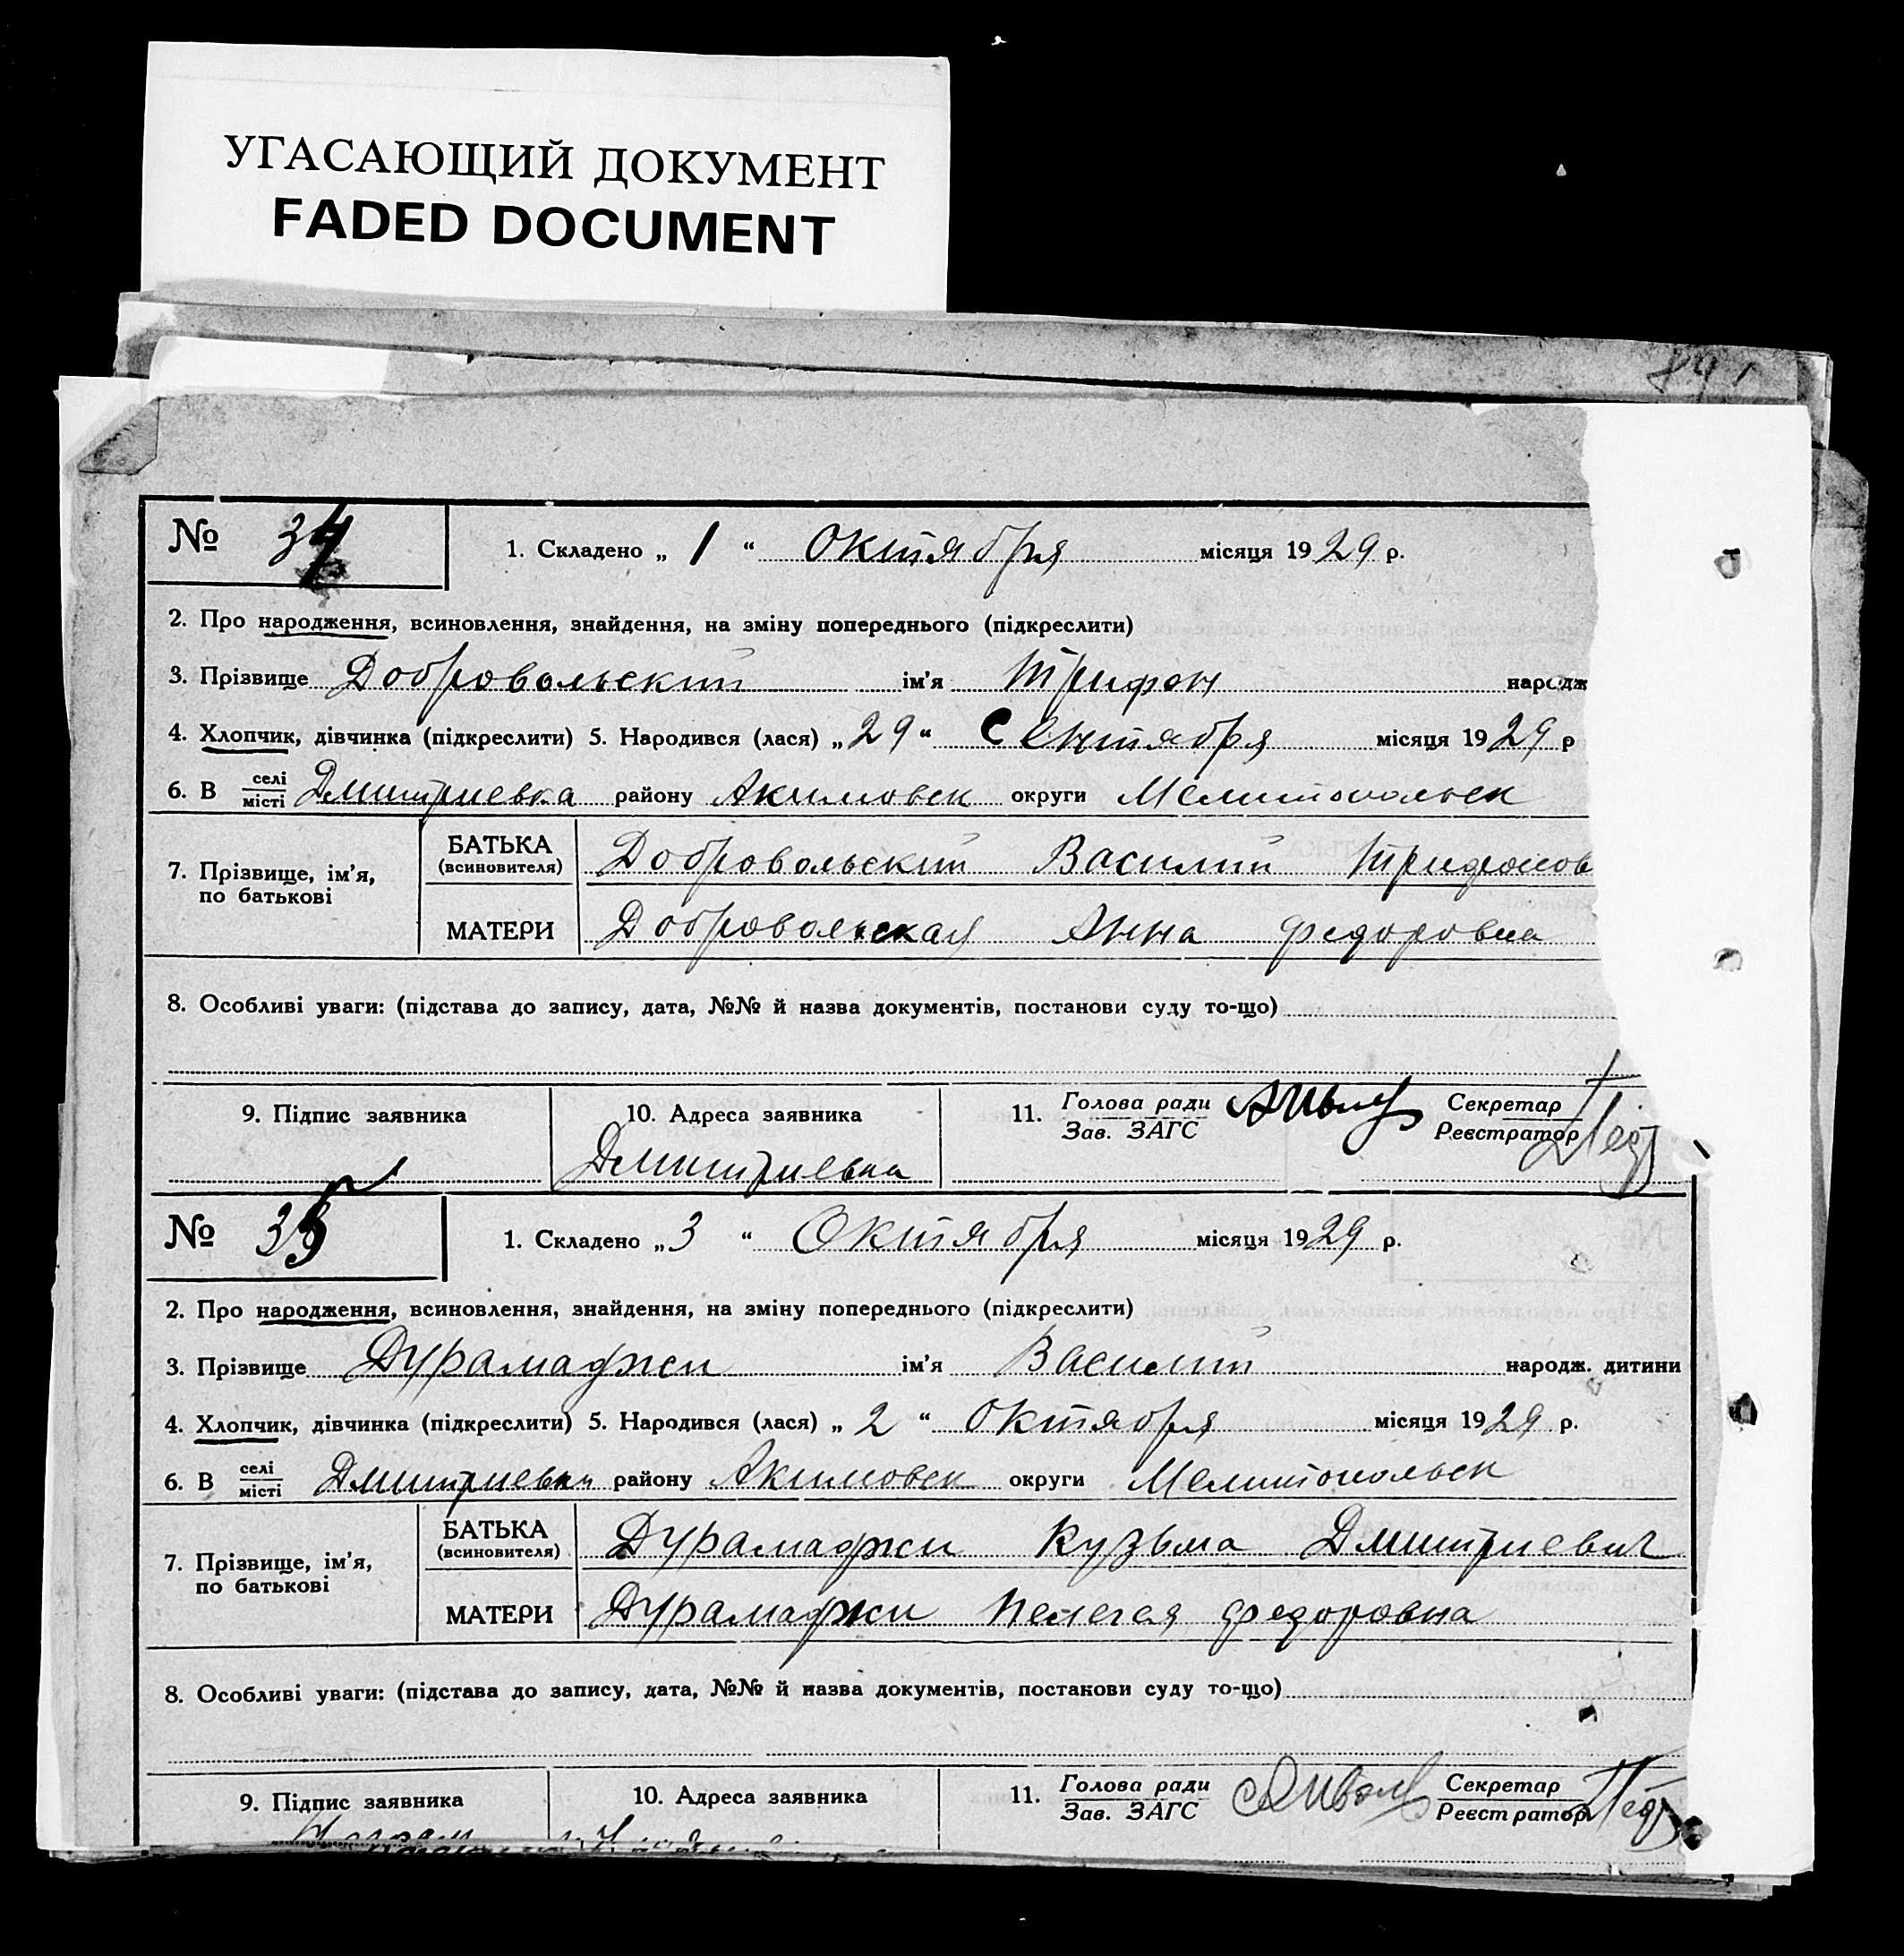 УГАСАЮЩИЙ ДОКУМЕНТ
FADED DOCUMENT
№ 34 1. Складено „ 1 “ Октября місяця 1929 р.
2. Про народження, всиновлення, знайдення, на зміну попереднього (підкреслити)
3. Прізвище Добровольский ім'я Трифон народж
4. Хлопчик, дівчинка (підкреслити) 5. Народився (лася) „ 29 “ Сентября місяця 1929 р
6. В селі місті Дмитриевка району Акимовск округи Мелитопольск
7. Прізвище, ім'я, по батькові
БАТЬКА (всиновителя) Добровольский Василий Трифонов
МАТЕРИ Добровольская Анна Федоровна
8. Особливі уваги: (підстава до запису, дата, №№ й назва документів, постанови суду то-що)
9. Підпис заявника 10. Адреса заявника 11. Голова ради Зав. ЗАГС Секретар Реєстратор
Дмитриевка
№ 35 1. Складено „ 3 “ Октября місяця 1929 р.
2. Про народження, всиновлення, знайдення, на зміну попереднього (підкреслити)
3. Прізвище Дурамаджи ім'я Василий народж. дитини
4. Хлопчик, дівчинка (підкреслити) 5. Народився (лася) „ 2 “ Октября місяця 1929 р.
6. В селі місті Дмитриевки району Акимовск округи Мелитопольск
7. Прізвище, ім'я, по батькові
БАТЬКА (всиновителя) Дурамаджи Кузьма Дмитриевич
МАТЕРИ Дурамаджи Пелегея Федоровна
8. Особливі уваги: (підстава до запису, дата, №№ й назва документів, постанови суду то-що)
9. Підпис заявника 10. Адреса заявника 11. Голова ради Зав. ЗАГС Секретар Реєстратор